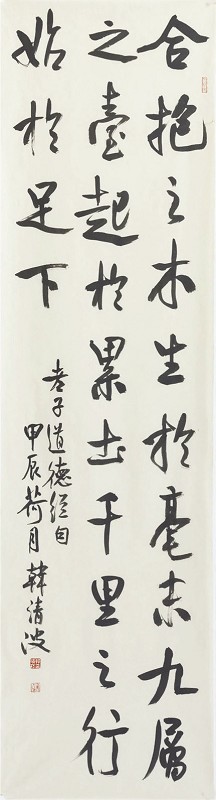 合抱之木生於毫末九層
之臺起於累土千里之行
始於足下
老子道德經句
甲辰荷月韓清波